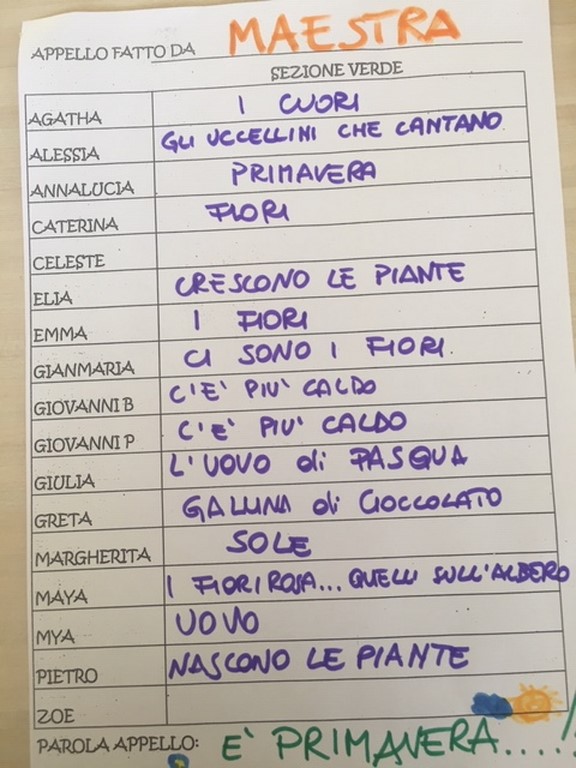 APPELLO FATTO DA MAESTRA
SEZIONE VERDE
AGATHA I CUORI
ALESSIA GLI UCCELLINI CHE CANTANO
ANNALUCIA PRIMAVERA
CATERINA FIORI
CELESTE
ELIA CRESCONO LE PIANTE
EMMA I FIORI
GIANMARIA CI SONO I FIORI
GIOVANNI B C'E' PIU' CALDO
GIOVANNI P C'E' PIU' CALDO
GIULIA L'UOVO di PASQUA
GRETA GALLINA di CIOCCOLATO
MARGHERITA SOLE
MAYA I FIORI ROSA... QUELLI SULL'ALBERO
MYA UOVO
PIETRO NASCONO LE PIANTE
ZOE
PAROLA APPELLO: E' PRIMAVERA....!